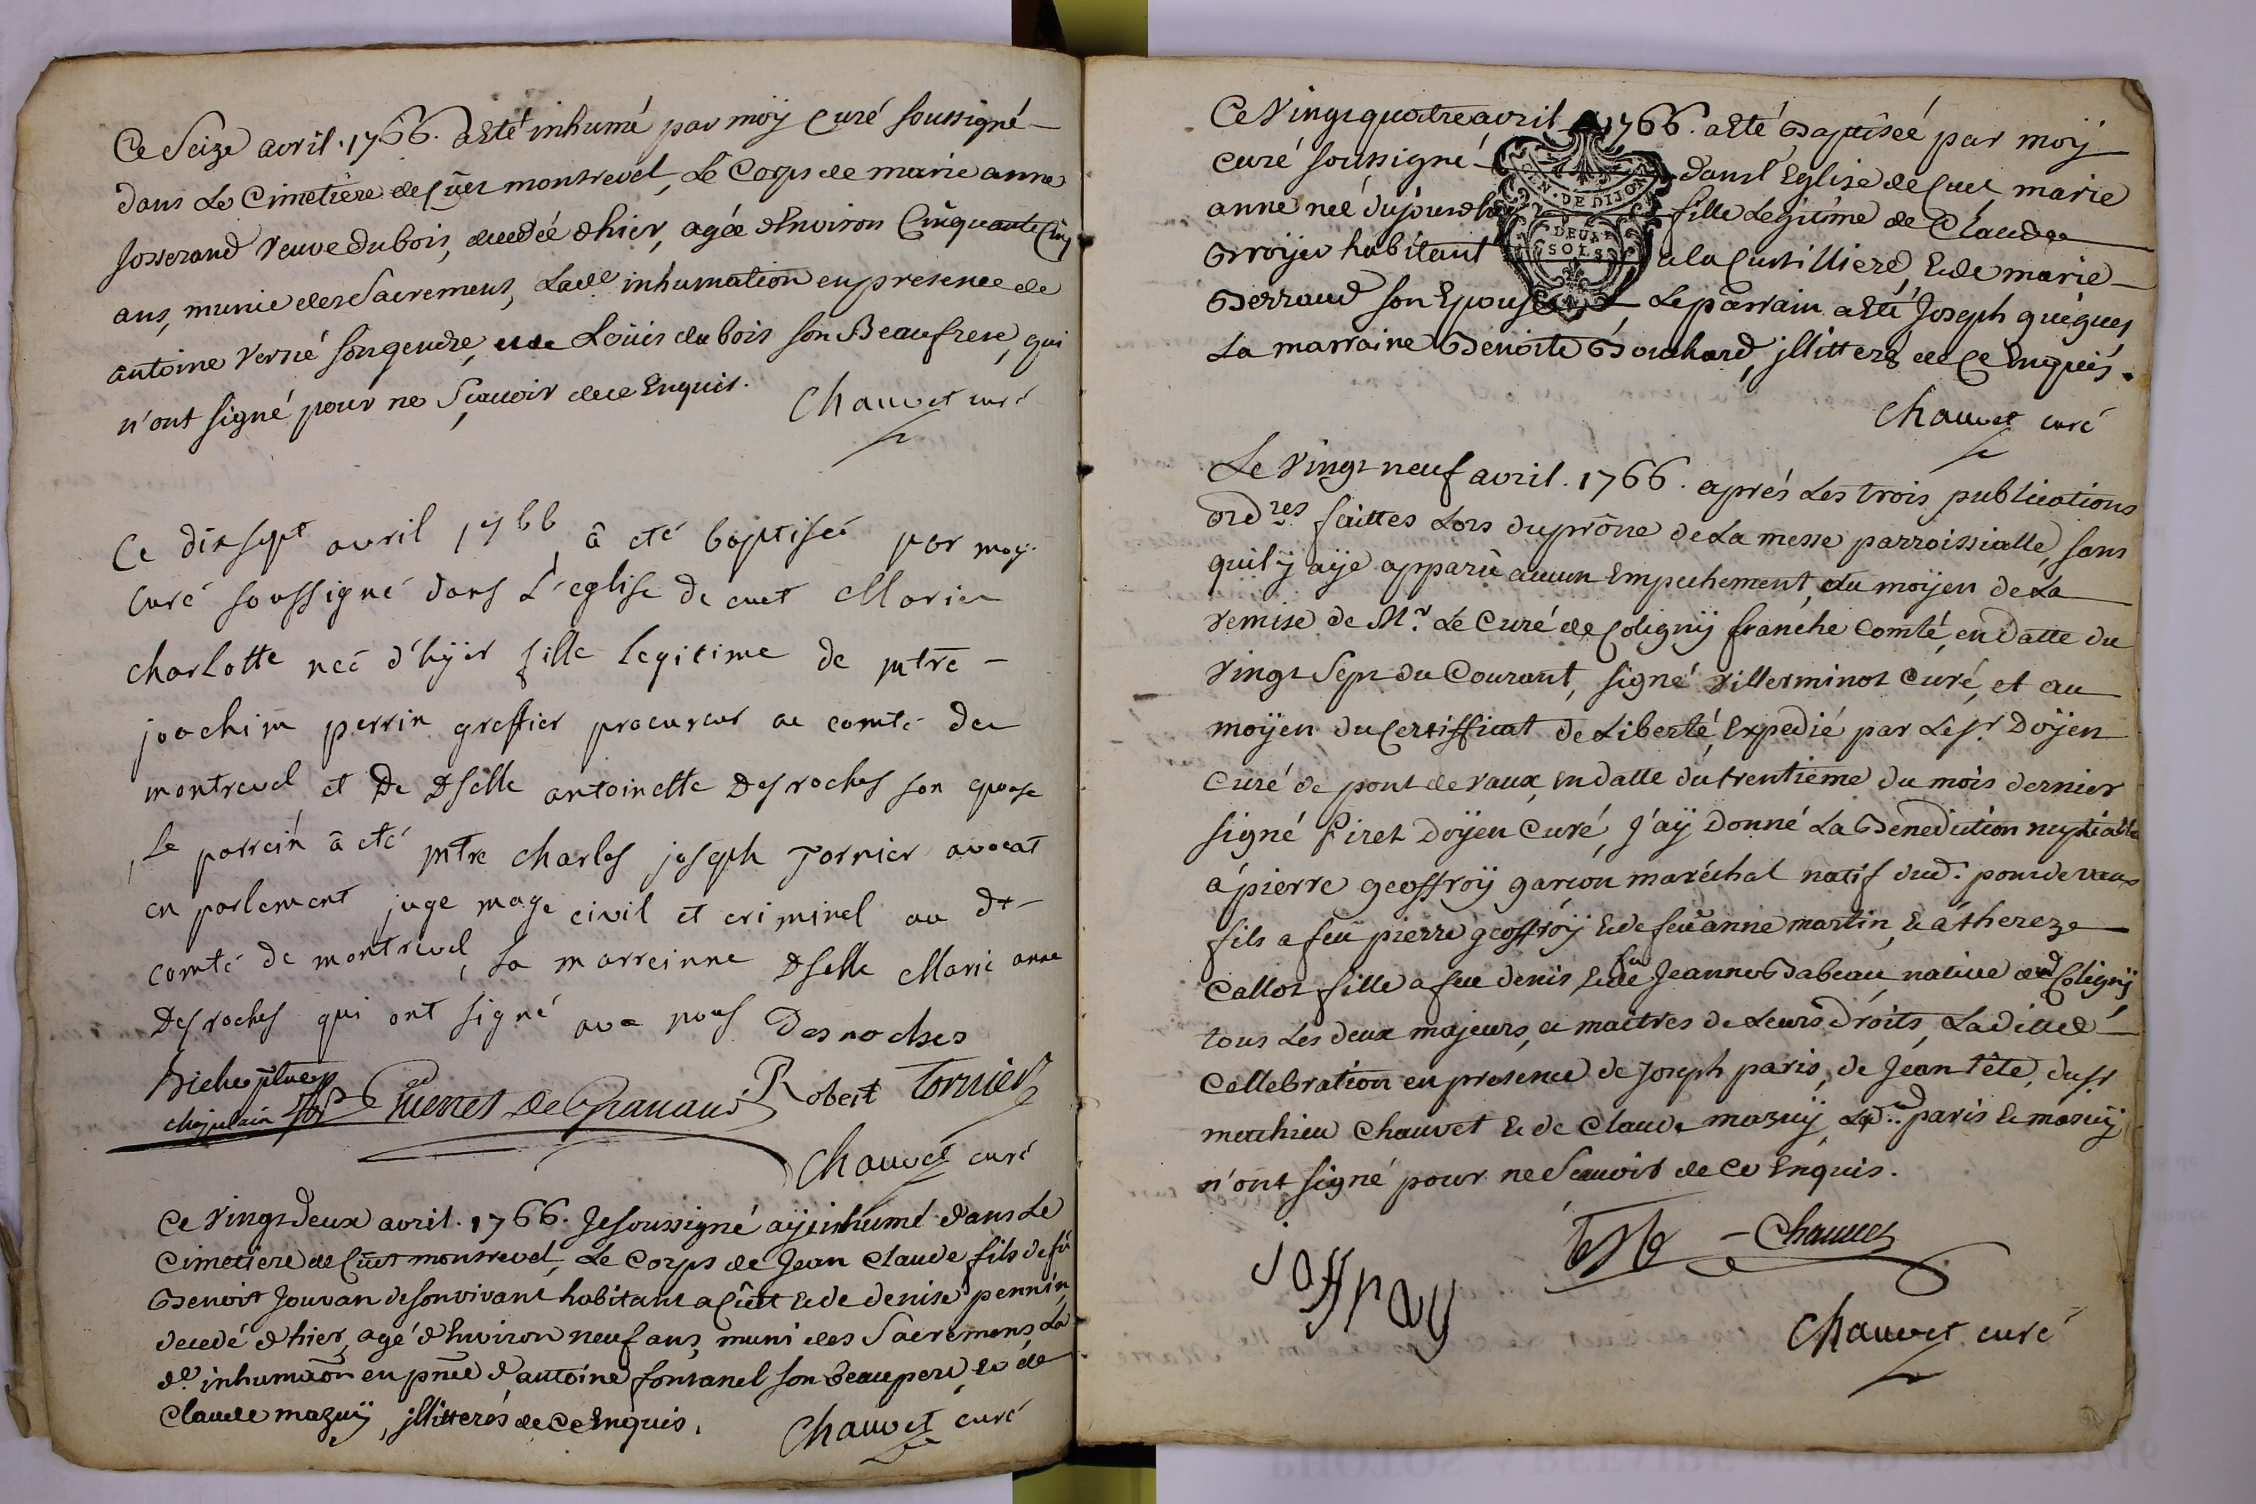 Ce Seize avril. 1766. a Eté inhumé par moÿ Curé soussigné
dans Le Cimetière de Cüet montrevel, Le Corps de marie anne
Josserand veuve dubois, decedée d'hier, agée d'Environ Cinquante Cinq
ans, munie des Sacremens, Lade inhumation en presence de
antoine verné son gendre, et de Loüis dubois son Beaufrere, qui
n'ont signé pour ne Sçavoir de ce Enquis.
Chauvet curé
Ce dixsept avril 1766 â eté baptiseé par moy
Curé soussigné dans L'eglise de cuet Marie
charlotte neé d'hÿer fille legitime de mtre
joachim perrin greffier procureur au comté de
montrevel et De Dselle antoinette Desroches son epouse
Le parrein â eté mtre charles joseph Tornier avocat
en parlement juge mage civil et criminel au dt
comté de montrevel, La marreinne Dselle Marie anne
Desroches qui ont signé avec nous Desroches
chapelain
Robert Tornier
Chauvet curé
Ce vingtdeux avril. 1766. Je soussigné aÿ inhumé dans Le
Cimetiere de Cüet montrevel, Le Corps de Jean Claude fils de fû
Benoit Jouvan de son vivant habitant a Cüet & de denise pennin,
decedé d'hier, agé d'Environ neuf ans, muni des Sacremens, La
de inhumaõn en pñce d'antoine fontanel son beaupere, et de
Claude mazuÿ, jllitterés de ce Enquis.
Chauvet curé
Ce vingtquatre avril 1766. a Eté Baptiseé par moÿ
curé soussigné dans L'Eglise de Cuet, marie
anne neé dujourdhuy fille Legitime de Claude
Broyer habitant a la Curtilliere, & de marie
Berraud son Epouse Le parrain a Eté Joseph guigues
La marraine Benoite Bouchard, jllitterés de Ce Enquis.
GEN. DE DIJON
DEUX
SOLS
Chauvet curé
Le vingt neuf avril. 1766. aprés Les trois publications
ordres faittes Lors du prône de La messe parroissialle, sans
quil ÿ aÿe apparû aucun Empechement, au moÿen de La
remise de Mr. Le Curé de Coligny franche Comté, en datte du
vingt Sept du Courant, signé villerminot Curé, et au
moÿen du Certifficat de Liberté, Expedié par Le Sr. Doÿen
Curé de pont de vaux, en datte du trentieme du mois dernier
signé Piret Doÿen Curé, J'aÿ Donné La Benediction nuptialle
á pierre geoffroÿ garcon maréchal natif dud. pontdevaux
fils a feu pierre geoffroÿ & de feuë anne martin, & á thereze
Callot fille a feu denis & de fu Jeanne Babeau, native dud Coligny
tous Les deux majeurs, et maîtres de Leurs Droits, La ditte
Cellebration en presence de Joseph paris, de Jean Tête, du Sr
mathieu Chauvet & de Claude mazuÿ, Lesd.. paris & mazuÿ
n'ont signé pour ne Scavoir de Ce Enquis.
joffray
teste
Chauvet
Chauvet curé